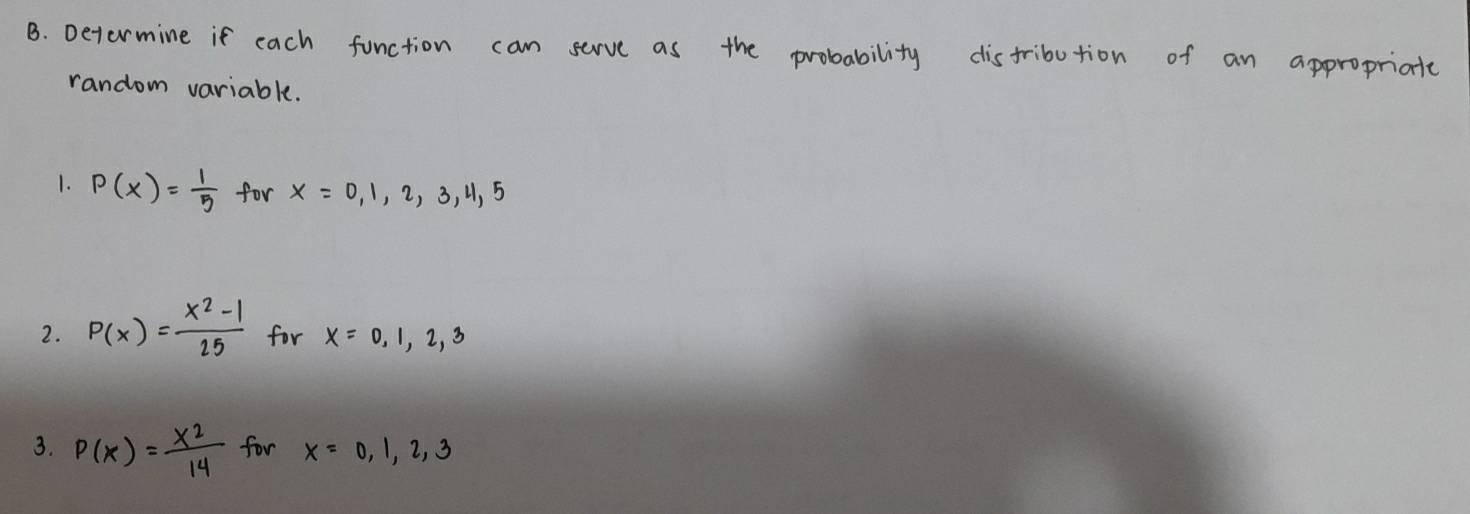 B. Determine if each function can serve as the probability distribution of an appropriate
random variable.
1. P(x) = 1/5 for x = 0, 1, 2, 3, 4, 5
2. P(x) = x²-1/25 for x = 0, 1, 2, 3
3. P(x) = x²/14 for x = 0, 1, 2, 3